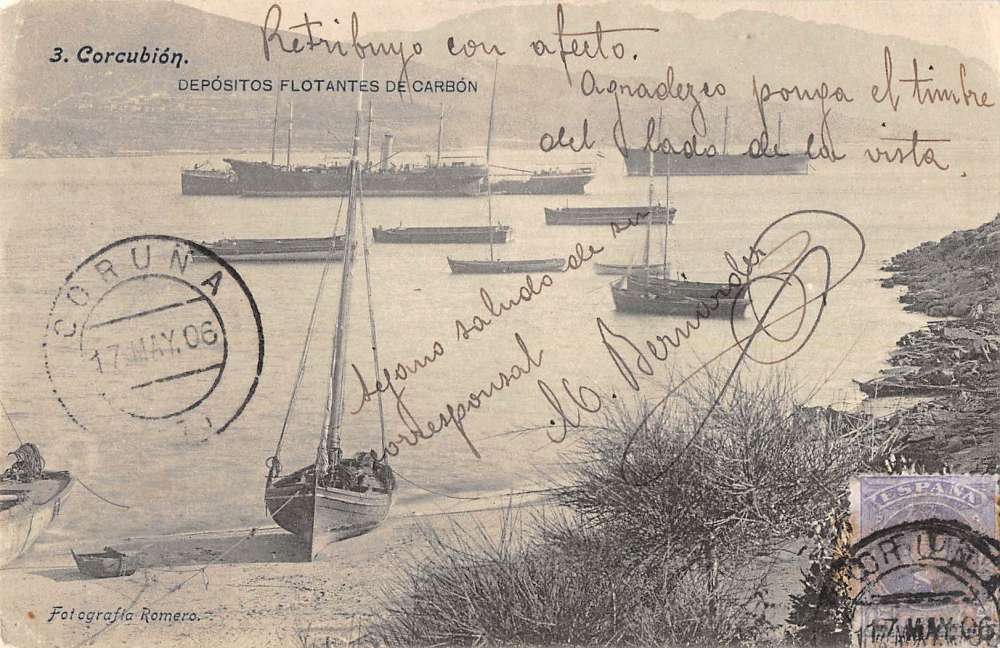 Retribuyo con afecto.
3. Corcubión.
DEPÓSITOS FLOTANTES DE CARBÓN
Agradezco ponga el timbre
del lado de la vista.
saludo de su
corresponsal
M. Bermúdez
CORUÑA
17 MAY. 06
ESPAÑA
CORUÑA
17 MAY. 06
Fotografía Romero.